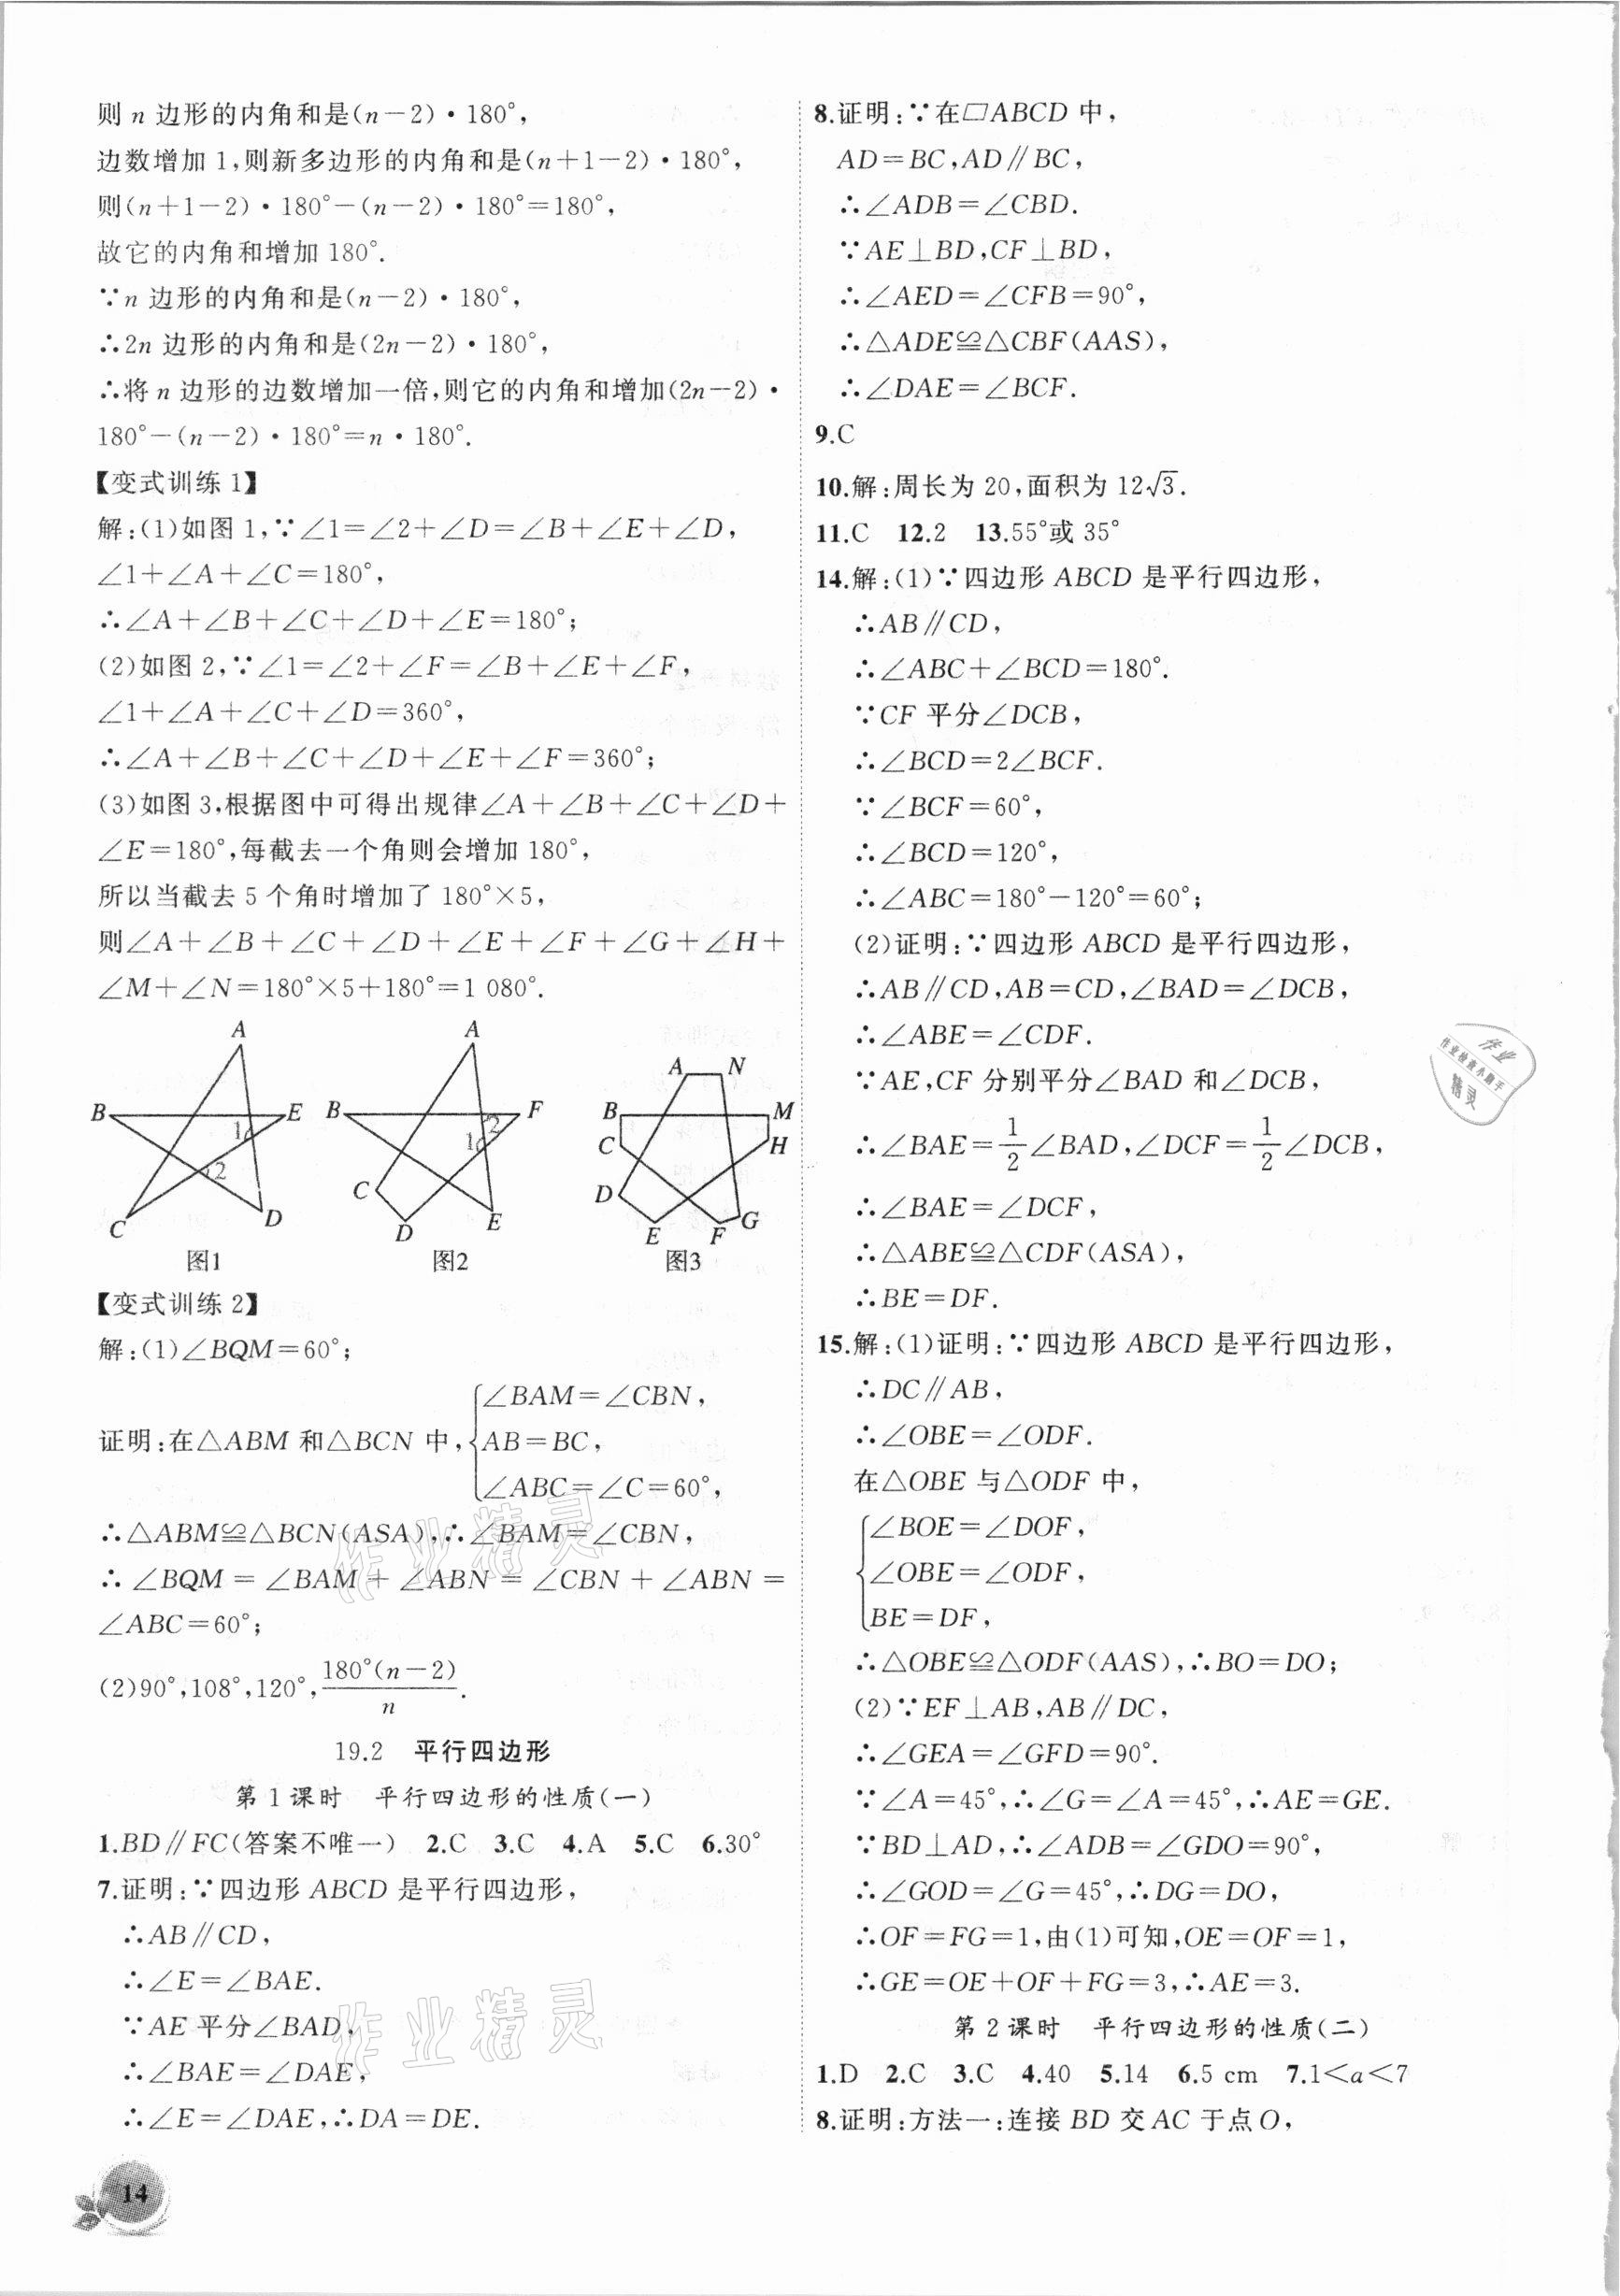 则 n 边形的内角和是(n－2)·180°,
边数增加 1,则新多边形的内角和是(n＋1－2)·180°,
则(n＋1－2)·180°－(n－2)·180°＝180°,
故它的内角和增加 180°.
∵n 边形的内角和是(n－2)·180°,
∴2n 边形的内角和是(2n－2)·180°,
∴将 n 边形的边数增加一倍,则它的内角和增加(2n－2)·
180°－(n－2)·180°＝n·180°.
【变式训练 1】
解:(1)如图 1,∵∠1＝∠2＋∠D＝∠B＋∠E＋∠D,
∠1＋∠A＋∠C＝180°,
∴∠A＋∠B＋∠C＋∠D＋∠E＝180°;
(2)如图 2,∵∠1＝∠2＋∠F＝∠B＋∠E＋∠F,
∠1＋∠A＋∠C＋∠D＝360°,
∴∠A＋∠B＋∠C＋∠D＋∠E＋∠F＝360°;
(3)如图 3,根据图中可得出规律∠A＋∠B＋∠C＋∠D＋
∠E＝180°,每截去一个角则会增加 180°,
所以当截去 5 个角时增加了 180°×5,
则∠A＋∠B＋∠C＋∠D＋∠E＋∠F＋∠G＋∠H＋
∠M＋∠N＝180°×5＋180°＝1 080°.
A
B
E
1
2
C
D
图1
A
B
F
2
1
C
D
E
图2
A N
B M
C H
D
E F G
图3
【变式训练 2】
解:(1)∠BQM＝60°;
证明:在△ABM 和△BCN 中,{∠BAM＝∠CBN,
AB＝BC,
∠ABC＝∠C＝60°,
∴△ABM≌△BCN(ASA),∴∠BAM＝∠CBN,
∴∠BQM＝∠BAM＋∠ABN＝∠CBN＋∠ABN＝
∠ABC＝60°;
(2)90°,108°,120°,180°(n－2)/n.
19.2 平行四边形
第 1 课时 平行四边形的性质(一)
1.BD∥FC(答案不唯一) 2.C 3.C 4.A 5.C 6.30°
7.证明:∵四边形 ABCD 是平行四边形,
∴AB∥CD,
∴∠E＝∠BAE.
∵AE 平分∠BAD,
∴∠BAE＝∠DAE,
∴∠E＝∠DAE,∴DA＝DE.
14
8.证明:∵在▱ABCD 中,
AD＝BC,AD∥BC,
∴∠ADB＝∠CBD.
∵AE⊥BD,CF⊥BD,
∴∠AED＝∠CFB＝90°,
∴△ADE≌△CBF(AAS),
∴∠DAE＝∠BCF.
9.C
10.解:周长为 20,面积为 12√3.
11.C 12.2 13.55°或 35°
14.解:(1)∵四边形 ABCD 是平行四边形,
∴AB∥CD,
∴∠ABC＋∠BCD＝180°.
∵CF 平分∠DCB,
∴∠BCD＝2∠BCF.
∵∠BCF＝60°,
∴∠BCD＝120°,
∴∠ABC＝180°－120°＝60°;
(2)证明:∵四边形 ABCD 是平行四边形,
∴AB∥CD,AB＝CD,∠BAD＝∠DCB,
∴∠ABE＝∠CDF.
∵AE,CF 分别平分∠BAD 和∠DCB,
∴∠BAE＝1/2∠BAD,∠DCF＝1/2∠DCB,
∴∠BAE＝∠DCF,
∴△ABE≌△CDF(ASA),
∴BE＝DF.
15.解:(1)证明:∵四边形 ABCD 是平行四边形,
∴DC∥AB,
∴∠OBE＝∠ODF.
在△OBE 与△ODF 中,
{∠BOE＝∠DOF,
∠OBE＝∠ODF,
BE＝DF,
∴△OBE≌△ODF(AAS),∴BO＝DO;
(2)∵EF⊥AB,AB∥DC,
∴∠GEA＝∠GFD＝90°.
∵∠A＝45°,∴∠G＝∠A＝45°,∴AE＝GE.
∵BD⊥AD,∴∠ADB＝∠GDO＝90°,
∴∠GOD＝∠G＝45°,∴DG＝DO,
∴OF＝FG＝1,由(1)可知,OE＝OF＝1,
∴GE＝OE＋OF＋FG＝3,∴AE＝3.
第 2 课时 平行四边形的性质(二)
1.D 2.C 3.C 4.40 5.14 6.5 cm 7.1＜a＜7
8.证明:方法一:连接 BD 交 AC 于点 O,
作业
作业检查小助手
精灵
作业精灵
作业精灵